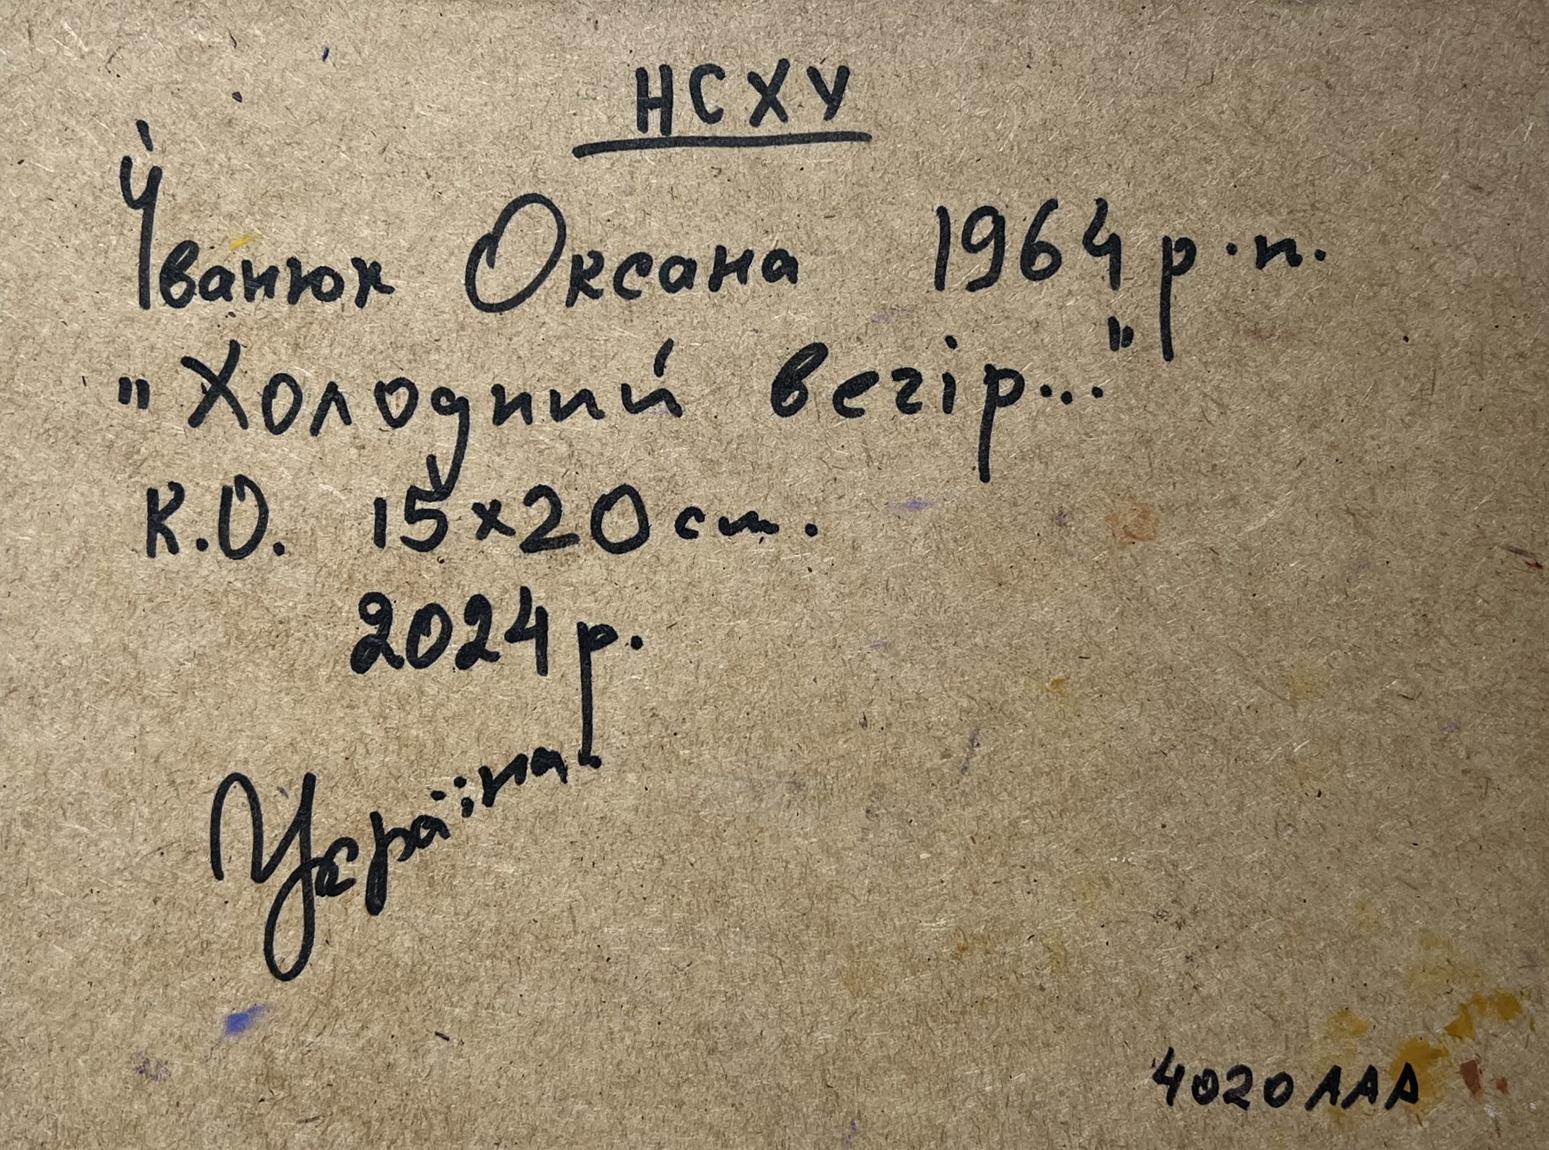 НСХУ
Іванюк Оксана 1964 р.н.
"Холодний вечір..."
К.О. 15х20 см.
2024 р.
Україна
4020ААА